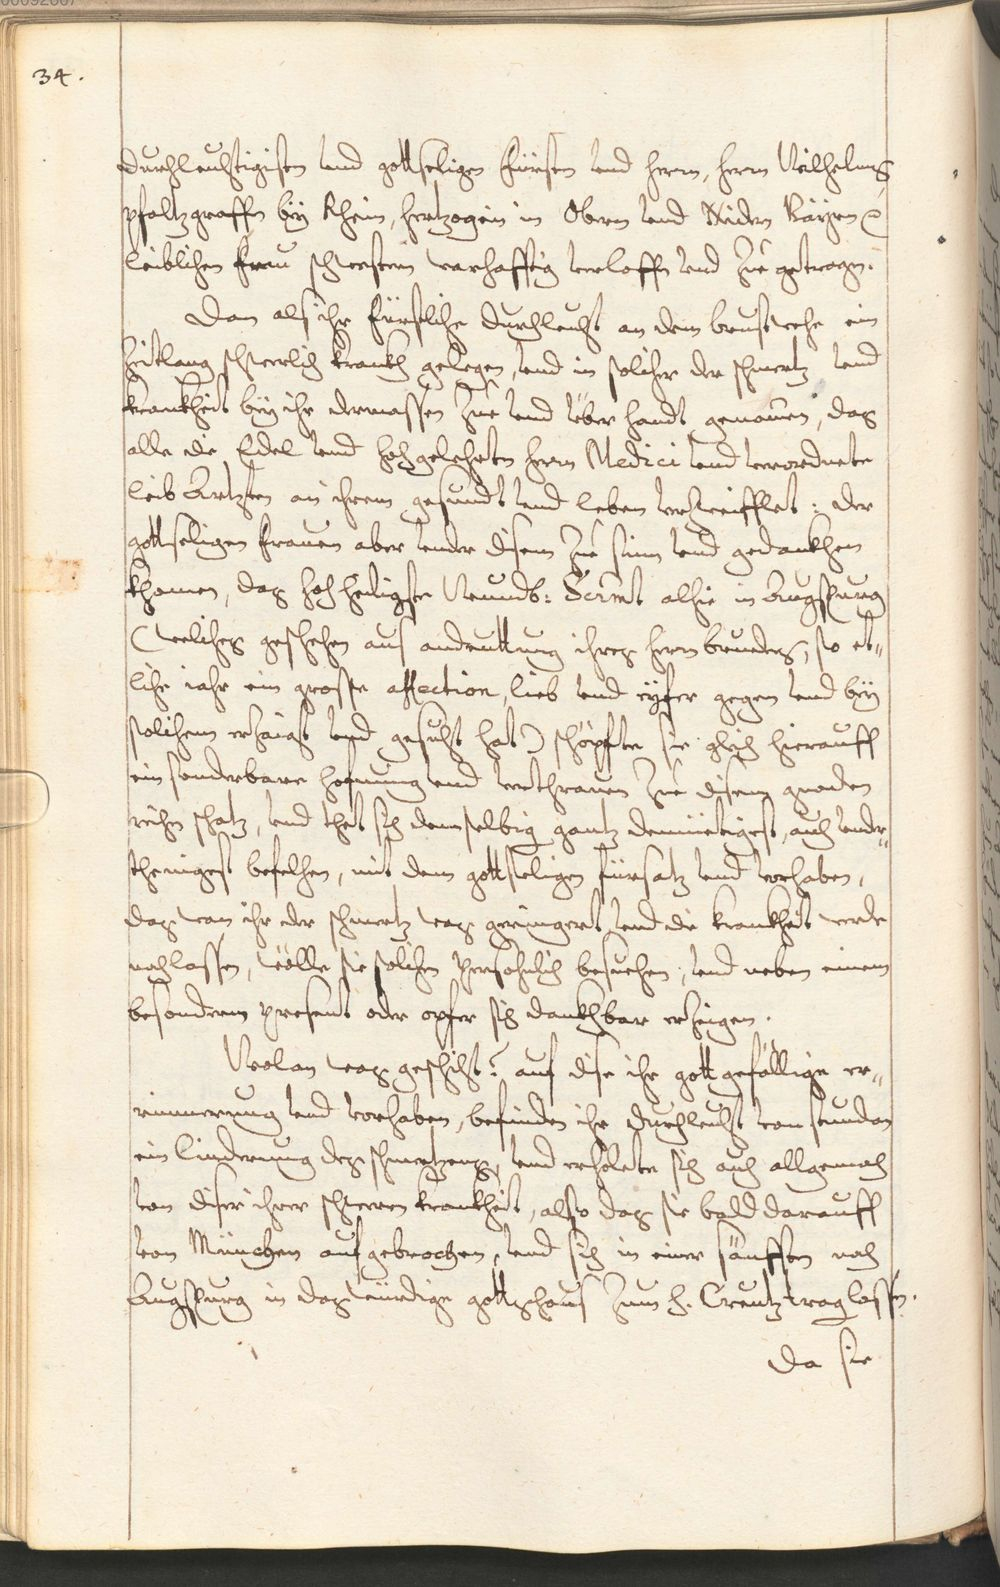 34.
durchleuchtigisten vnd gottseligen fürsten vnd herrn, herrn Wilhelms
pfaltzgraffen bey Rhein, hertzogen in Obern vnd Nidern Bayren etc.
leiblichen frau schwestern warhafftig verloffen vnd zue getragen.
Dan als ihr fürstliche durchleucht an dem brustwehe ein
zeitlang schwerlich kranckh gelegen, vnd in solicher der schmertz vnd
kranckheit bey ihr dermassen zue vnd überhandt genomen, das
alle die Edel vnd hochgelehrten herrn Medici vnd verordnete
leib Artzten an ihrem gesundt vnd leben verzweifflet: der
gottseligen frauen aber vnder disem zue sinn vnd gedanckhen
khomen, das hoch heiligste Wundb: Scrmt alhie in Augspurg
(weliches geschehen aus andeuttung ihres herrn bruders, so et„
liche iahr ein grosse affection, lieb vnd eyfer gegen vnd bey
solichem erzaigt vnd gesucht hat) schöpffte sie gleich hierauff
ein sonderbare hofnung vnd verthrauen zue disem gnaden
reichen schatz, vnd thet sich demselbig gantz demüetigest, auch vnder„
thenigest befelhen, mit dem gottseligen fürsatz vnd vorhaben,
das wan ihr der schmertz was geringert vnd die kranckheit werde
nachlassen, wölle sie solichen persohnlich besuechen, vnd neben einem
besondrem present oder opfer sich danckhbar erzeigen.
Wolan was geschicht? auf dise ihr gott gefällige er„
innerung vnd vorhaben, befinden ihr durchleucht von stundan
ein linderung des schmertzens, vnd erholete sich auch allgemach
von diser ihrer schweren kranckheit, also das sie bald darauff
von München aufgebrochen, vnd sich in einer sänfften nach
Augspurg in das würdige gottshaus zum h. Creutz trag lassen.
Da sie